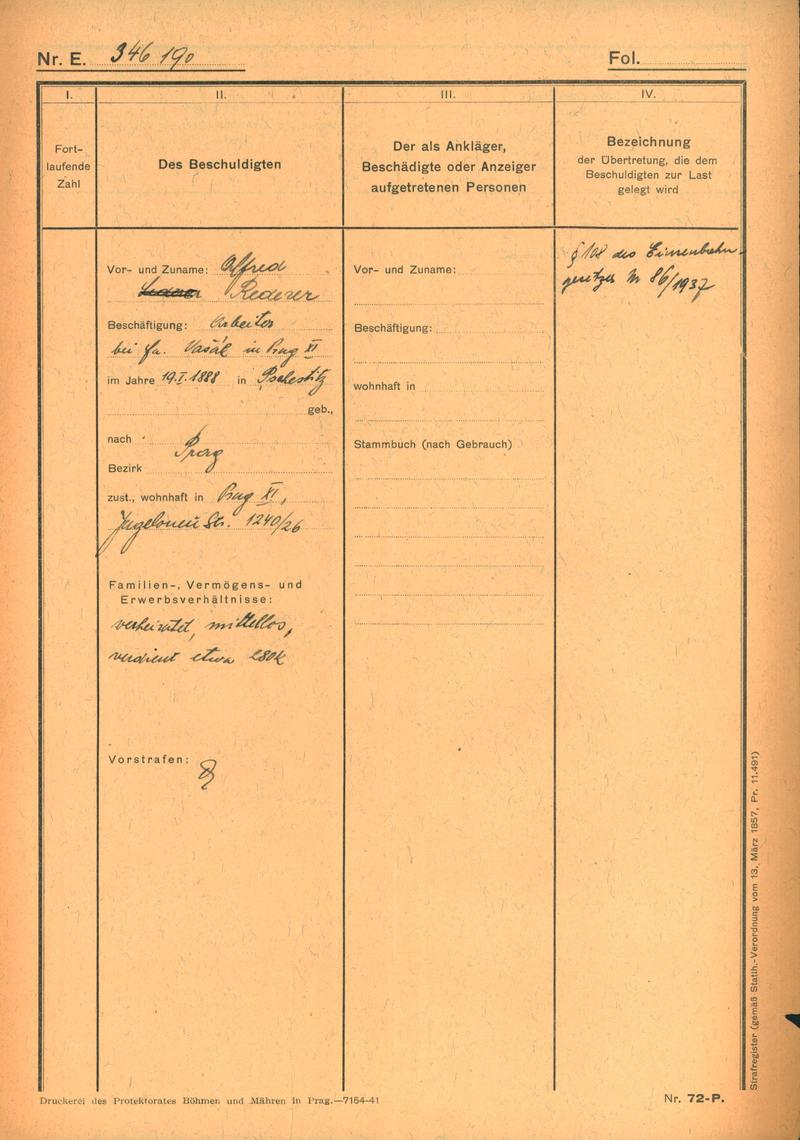 Nr. E. 346 190
Fol.
I.
Fort-
laufende
Zahl
II.
Des Beschuldigten
III.
Der als Ankläger,
Beschädigte oder Anzeiger
aufgetretenen Personen
IV.
Bezeichnung
der Übertretung, die dem
Beschuldigten zur Last
gelegt wird
Vor- und Zuname: Alfred
Rederer
Beschäftigung: Arbeiter
bei Fa. Vašák in Prag XI
im Jahre 19.I.1888 in
geb.,
nach
Prag
Bezirk
zust., wohnhaft in Prag XI,
Str. 1240/26
Familien-, Vermögens- und
Erwerbsverhältnisse:
verheiratet, mittellos,
verdient etwa 280K
Vorstrafen:
Vor- und Zuname:
Beschäftigung:
wohnhaft in
Stammbuch (nach Gebrauch)
§ 108 des Eisenbahn-
gesetzes Nr 86/1937
Strafregister (gemäß Statth.-Verordnung vom 13. März 1857, Pr. 11.491)
Druckerei des Protektorates Böhmen und Mähren in Prag.—7154-41
Nr. 72-P.